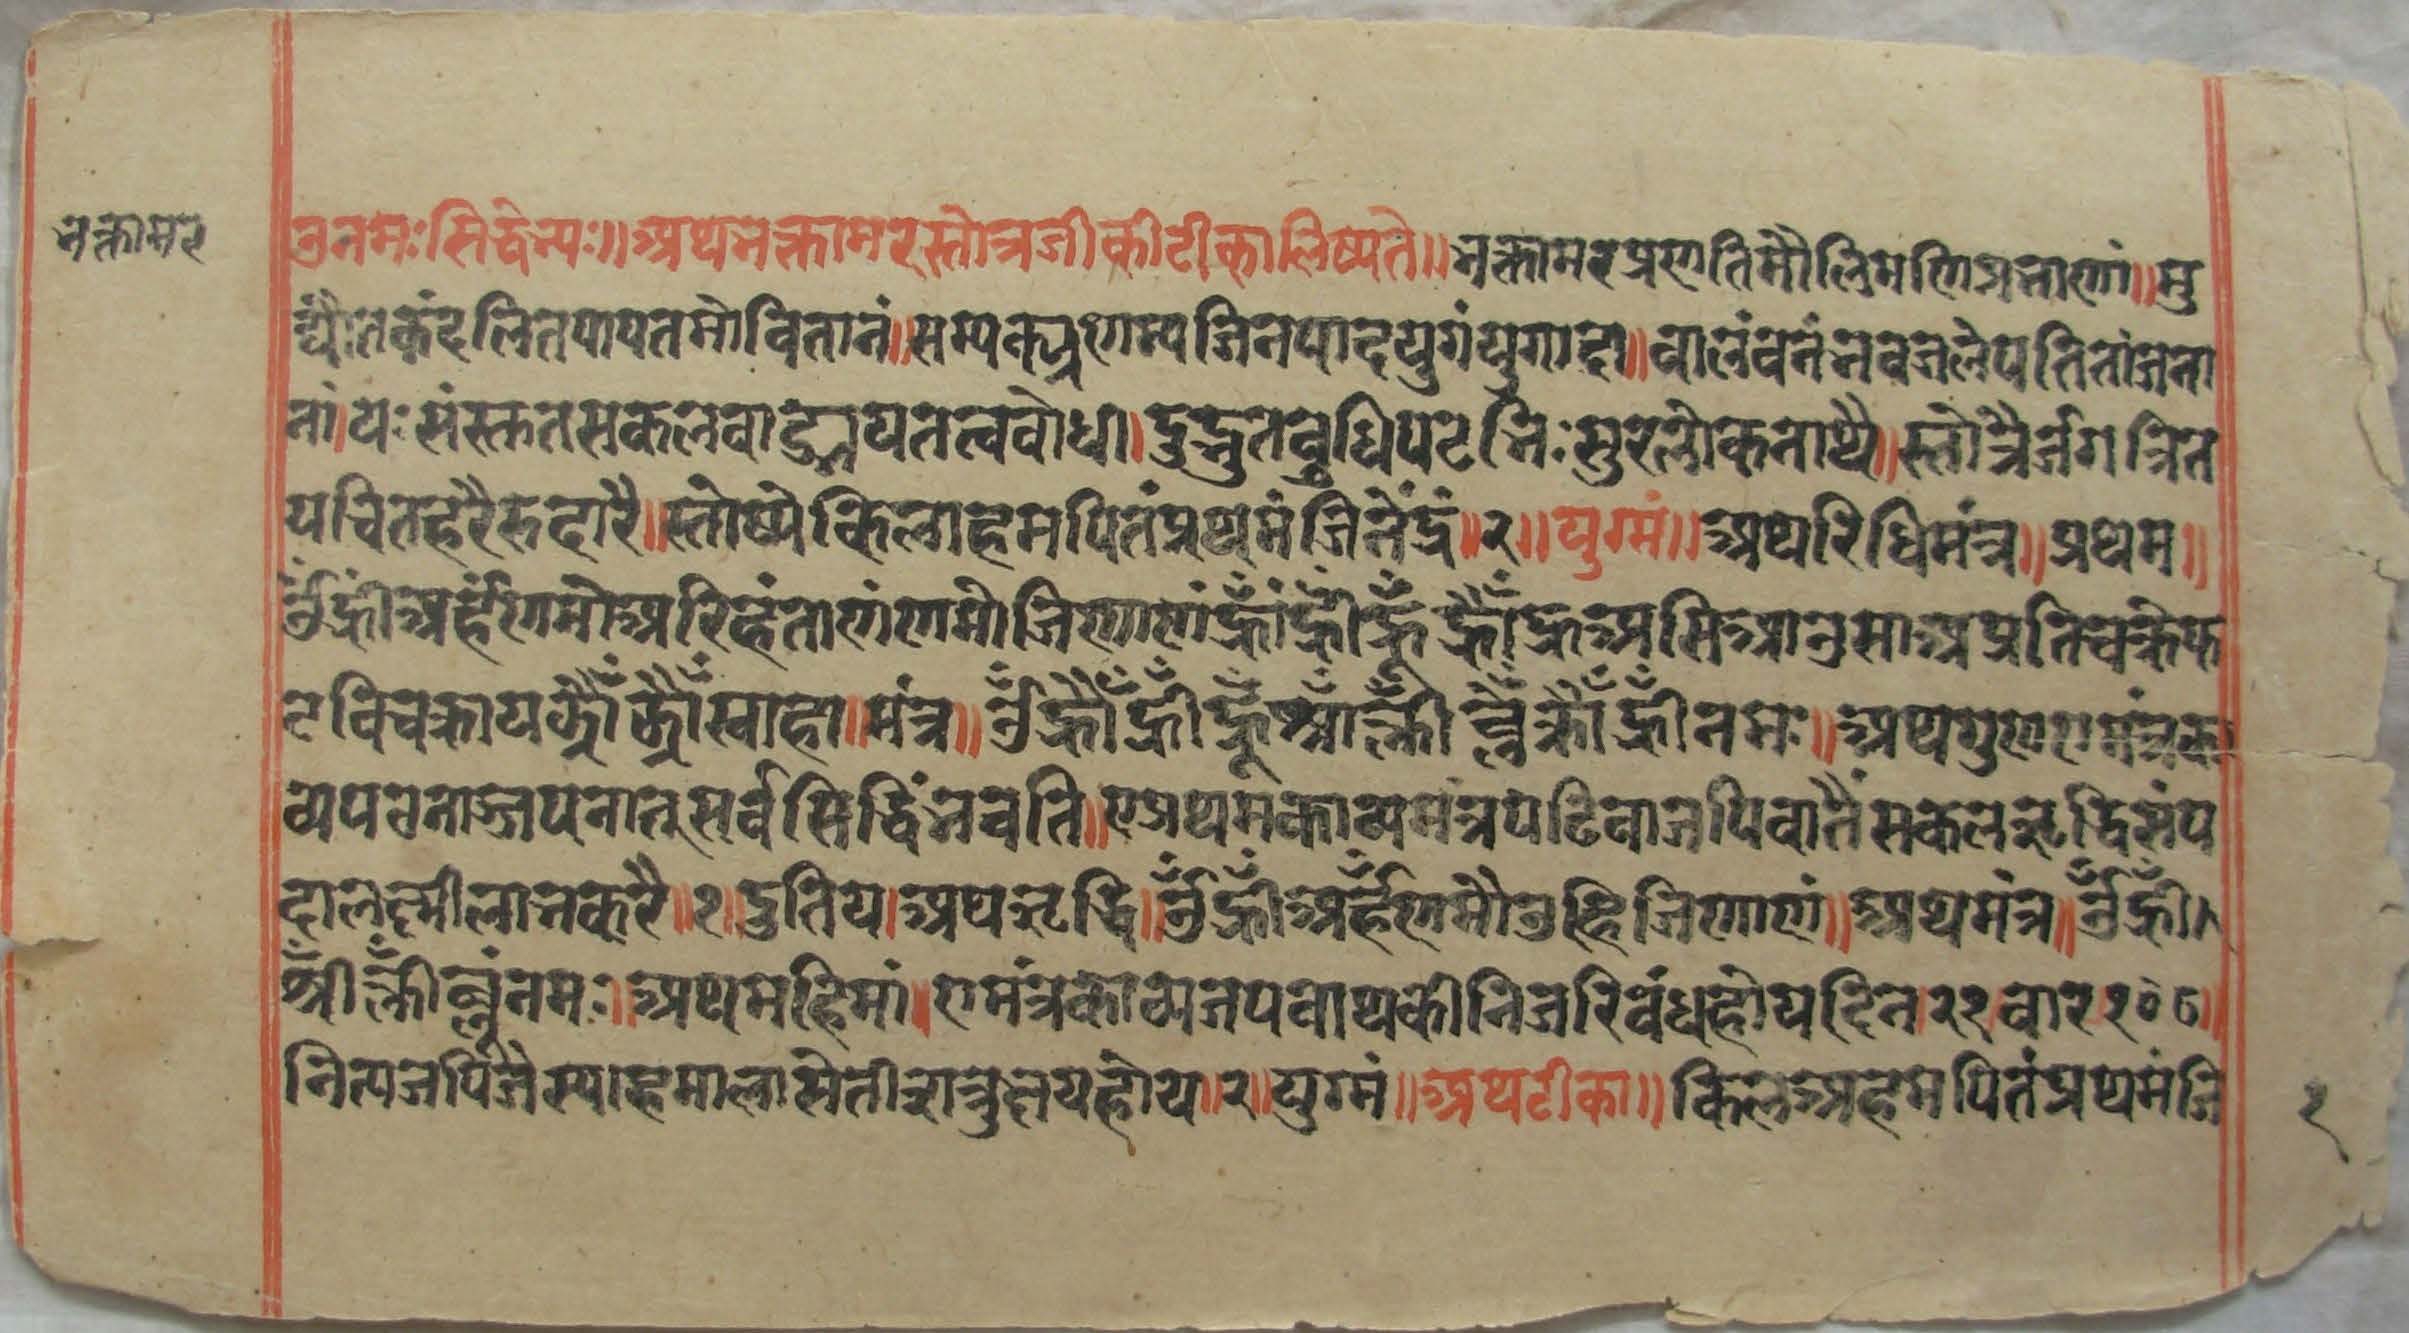 भक्तामर
उनमः सिद्धेभ्यः॥ अथभक्तामरस्तोत्रजीकीटीकालिष्यते॥ भक्तामरप्रणतिमौलिमणिप्रभाणां॥ मु
द्यौतकंदलितपापतमोवितानं॥ सम्यक्प्रणम्यजिनपादयुगंयुगादा॥ वालंवनंभवजलेपतितांजना
नां। यः संस्कृतसकलवाङ्मयतत्ववोधा। दुद्भुतवुधिपटभिः सुरलोकनाथै॥ स्तोत्रैर्जगत्रित
यचितहरैरुदारै॥ स्तोष्येकिलाहमपितंप्रथमंजिनेंद्रं॥ २॥ युग्मं॥ अथरिधिमंत्र॥ प्रथम॥
उँह्रींअर्हंणमोअरिहंताणंणमोजिणाणंह्राँह्रीँह्रूँह्रौँह्रःअसिआउसाअप्रतिचक्रेफ
टविचक्रायझ्रौँझ्रौँस्वाहा॥ मंत्र॥ उँह्राँह्रीँह्रूँश्राँक्लीँब्लूँक्रौँह्रीँनमः॥ अथगुणणमंत्रक
व्यपठनाज्जपनात्सर्वसिद्धिंभवति॥ एप्रथमकाव्यमंत्रपढिवाजपिवातैंसकलऋद्धिसंप
दालक्ष्मीलाभकरै॥ १॥ दुतिय। अथऋद्धि॥ उँह्रीँअर्हँणमौउहिजिणाणं॥ अथमंत्र॥ उँह्रीँ॥
श्रीँक्लीँब्लूंनमः॥ अथमहिमां॥ एमंत्रकाव्यजपवाथकीनिजरिवंधहोयदिन२१वार१०८॥
नित्यजपिजैस्याहमालासेतीशत्रुक्षयहोय॥ २॥ युग्मं॥ अथटीका॥ किलअहमपितंप्रथमंजि
१